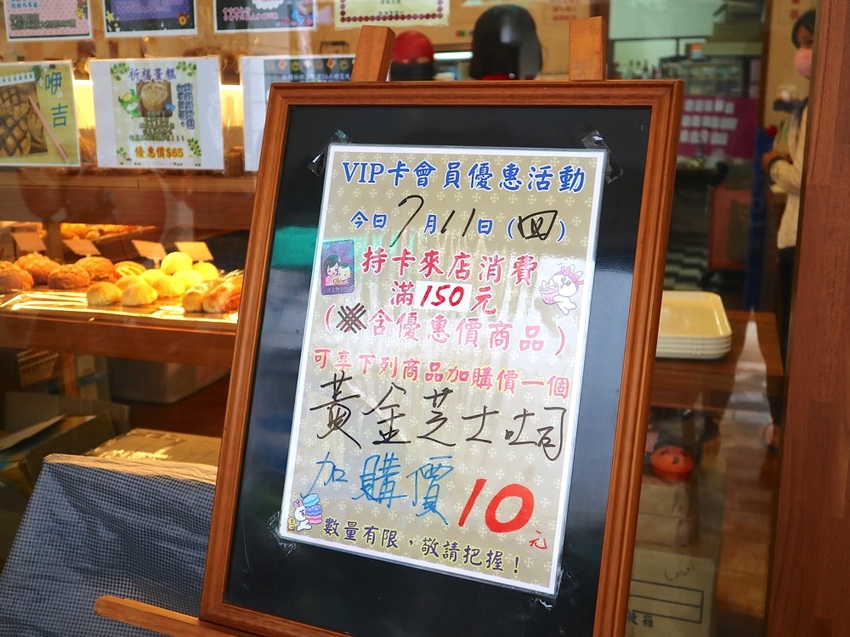 咿吉
祈福蛋糕
優惠價$65
VIP卡會員優惠活動
今日7月11日(四)
持卡來店消費
滿150元
(含優惠價商品)
可享下列商品加購價一個
黃金芝士吐司
加購價10元
數量有限，敬請把握！